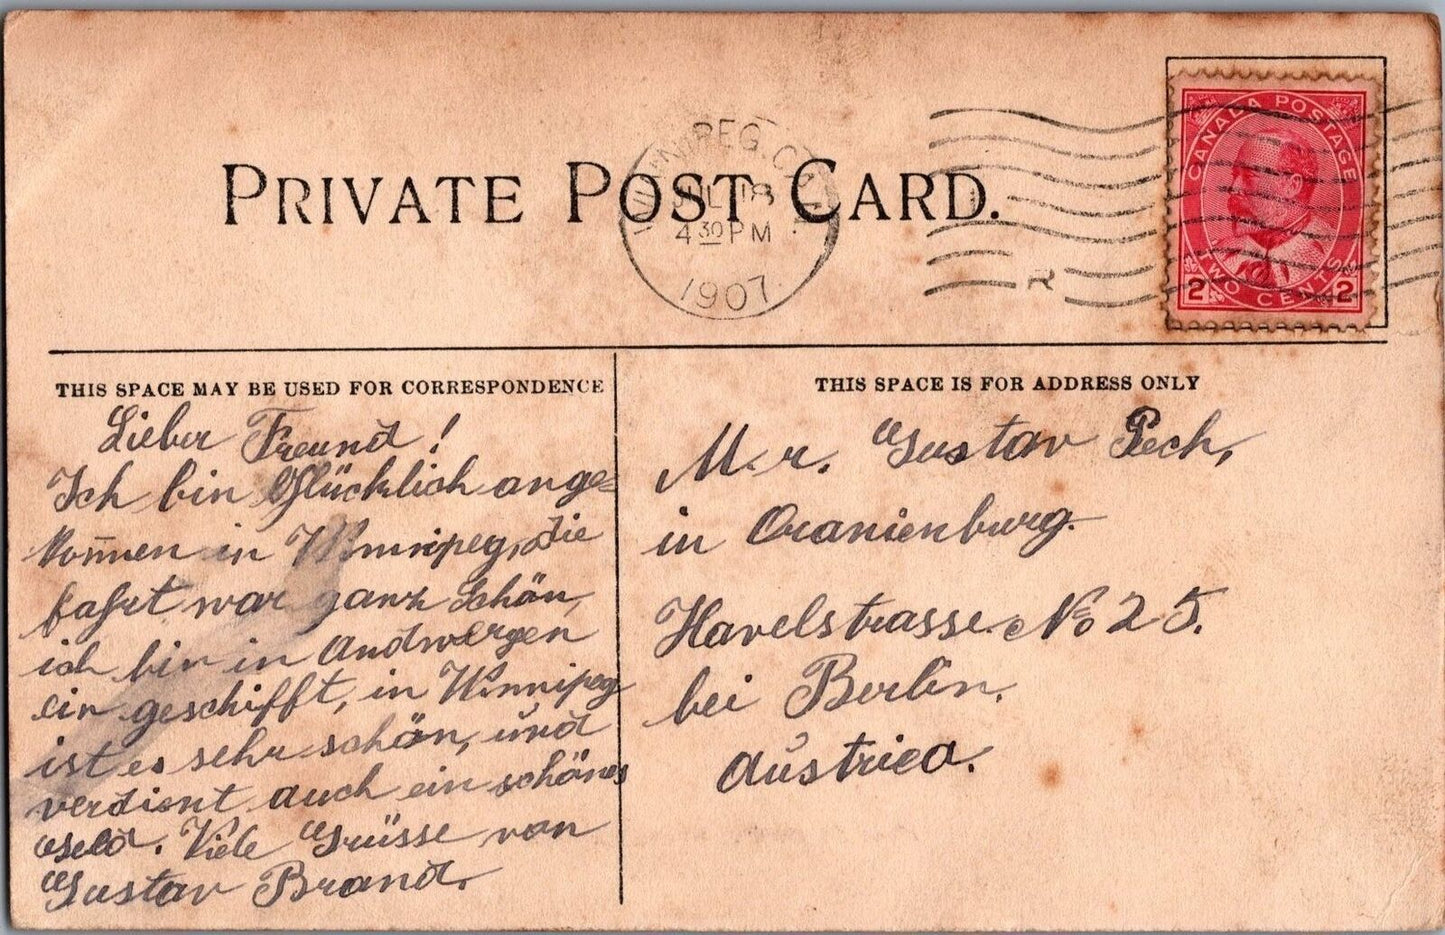 PRIVATE POST CARD.
WINNIPEG. CAN.
JUL 18
4 30 PM
1907
R
CANADA POSTAGE
2 TWO CENTS 2
THIS SPACE MAY BE USED FOR CORRESPONDENCE
Lieber Freund!
Ich bin Glücklich ange=
kom̅en in Winnipeg, die
fahrt war ganz schön,
ich bin in Andwergen
ein geschifft, in Winnipeg
ist es sehr schön, und
verdient auch ein schönes
Geld. Viele Grüsse von
Gustav Brand.
THIS SPACE IS FOR ADDRESS ONLY
Mr. Gustav Pech,
in Oranienburg.
Havelstrasse No 25.
bei Berlin.
Austriea.